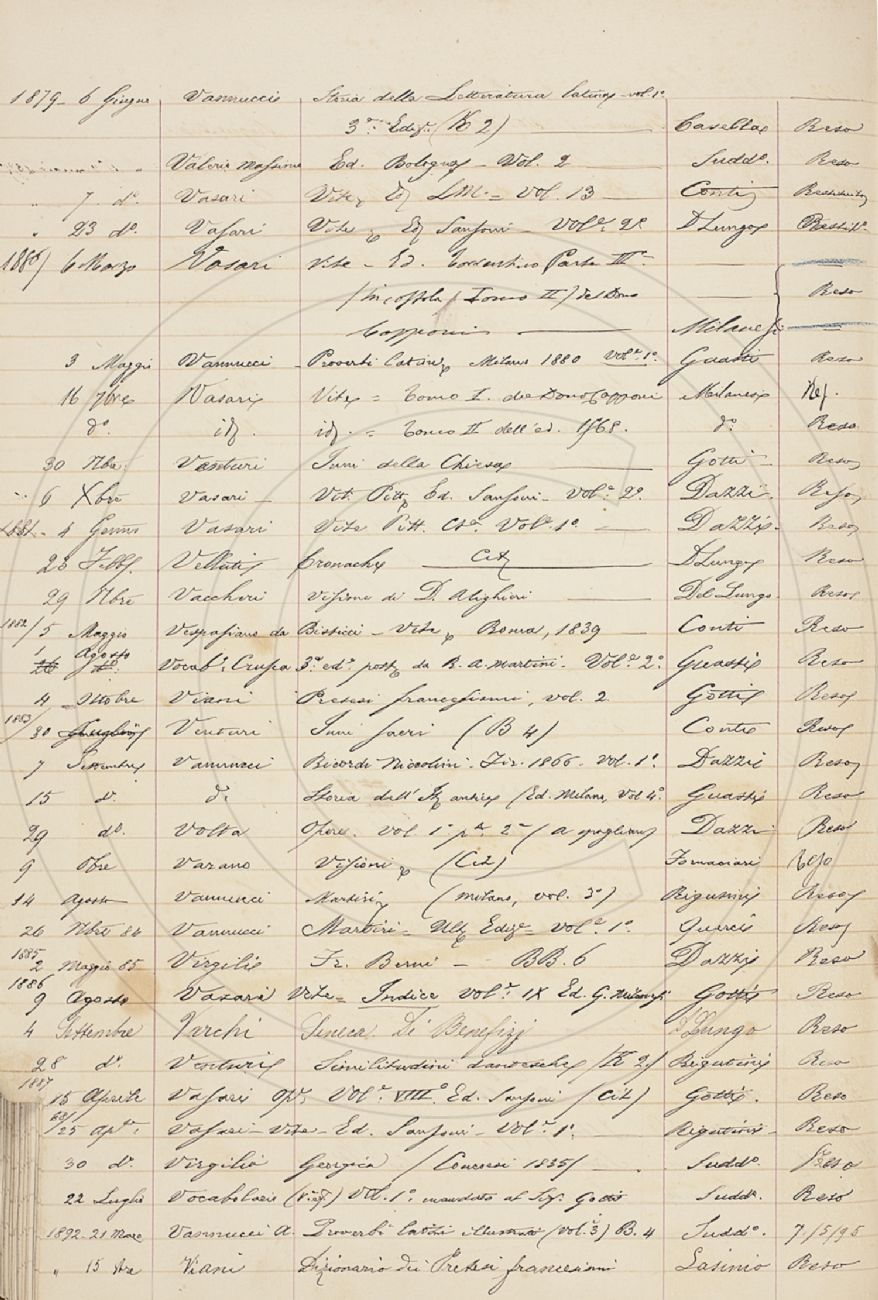 1879 - 6 Giugno Vannucci Storia della Letteratura latina - vol. 1º
3ª Ediz. (K 2) — Casella Reso
" Valerio Massimo Ed. Bologna - Vol. 2 Sudd.º Reso
" 7 d.º Vasari Vite, Ed. L.M. = Vol. 13 — Conti Restituito
" 23 d.º Vasari Vite, Ed. Sansoni - Vol.e 2º D'Lungo Restit.º
1880/ 6 Marzo Vasari Vite - Ed. Torrentino Parte III.
(in cassola) Tomo II) del Dono — Reso
Capponi — Milanesi
3 Maggio Vannucci - Proverbi latini, Milano 1880 vol.e 1º Guasti Reso
16 7bre Vasari Vite = Tomo I. de Dono Capponi Milanesi
d.º id. id. = Tomo II dell'ed. 1568. d.º Reso
30 9bre. Venturi Inni della Chiesa — Gotti - Reso
" 6 Xbre Vasari - Vit. Pitt. Ed. Sansoni - Vol.e 2º. Dazzi. Reso
1881 - 4 Genn. Vasari Vite Pitt. Cta. Vol.e 1º. — Dazzi. Reso
20 Febb. Velluti Cronache Cit. — D'Lungo Reso
29 9bre Vaccheri Visione di D. Alighieri — Del Lungo Reso
1882/ 5 Maggio Vespasiano da Bisticci - Vite, Roma, 1839 — Conti Reso
1 Agosto Vocab.º Crusca 3ª ed.e, post. da R. A. Martini. Vol.e 2º Guasti Reso
4 Ottobre Viani Pretesi francesismi, vol. 2 Gotti Reso
1883/ 30 Venturi Inni sacri (B 4) Conti Reso
7 Settembre Vannucci Ricordi Niccolini. Fir. 1866. Vol. 1º. Dazzi Reso
15 d.º d.º Storia dell'It. antica (Ed. Milano, Vol. 4º. Guasti Reso
29 d.º Volta Opere. Vol 1º p.te 2ª (a spoglian) Dazzi Reso
9 8bre Varano Visioni, (Cit.) Fornaciari Reso
14 Agosto Vannucci Martiri, (Milano, vol. 3º) Rigutini Reso
26 9bre 84 Vannucci Martiri - Ult. Ediz.e - vol.e 1º. Guasti Reso
1885 2 Maggio 85 Virgilio Fr. Berni - BB. 6 Dazzi Reso
1886 9 Agosto Vasari Vite - Indice vol.e IX Ed. G. Milanesi Gotti Reso
4 Settembre Varchi Seneca De' Benefizj D'Lungo Reso
28 d.º Venturi Similitudini dantesche (K 2) Rigutini Reso
1887 15 Aprile Vasari Op.e, Vol.e VIIIº. Ed. Sansoni (Cit.) Gotti. Reso
25 Ap.le. Vasari - Vite - Ed. Sansoni - Vol.e 1º. — Rigutini - Reso
30 d.º Virgilio Georgica / Concessi 1835/ — Sudd.º. Reso
22 Luglio Vocabolario Vol. 1º. mandato al Sig. Gotti Sudd.º. Reso
1892 - 21 Marzo Vannucci A. Proverbi latini illustrati (vol. 3) B. 4 Sudd.º. 7/5/95
" 15 Viani Dizionario dei Pretesi francesismi Lasinio Reso